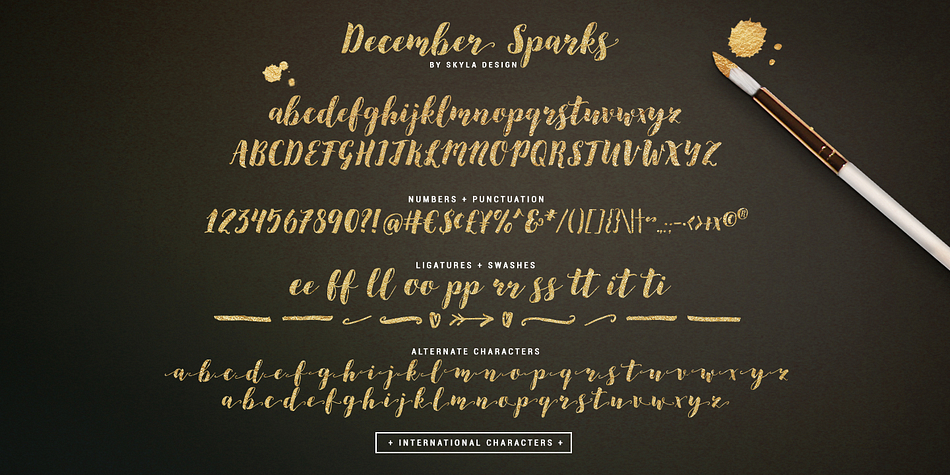 December Sparks
BY SKYLA DESIGN
abcdefghijklmnopqrstuvwxyz
ABCDEFGHIJKLMNOPQRSTUVWXYZ
NUMBERS + PUNCTUATION
1234567890?!@#€$¢£¥%^&*/()[]{}\|†"",.:;-~<>+x©®
LIGATURES + SWASHES
ee ff ll oo pp rr ss tt it ti
ALTERNATE CHARACTERS
abcdefghijklmnopqrstuvwxyz
abcdefghijklmnopqrstuvwxyz
+ INTERNATIONAL CHARACTERS +